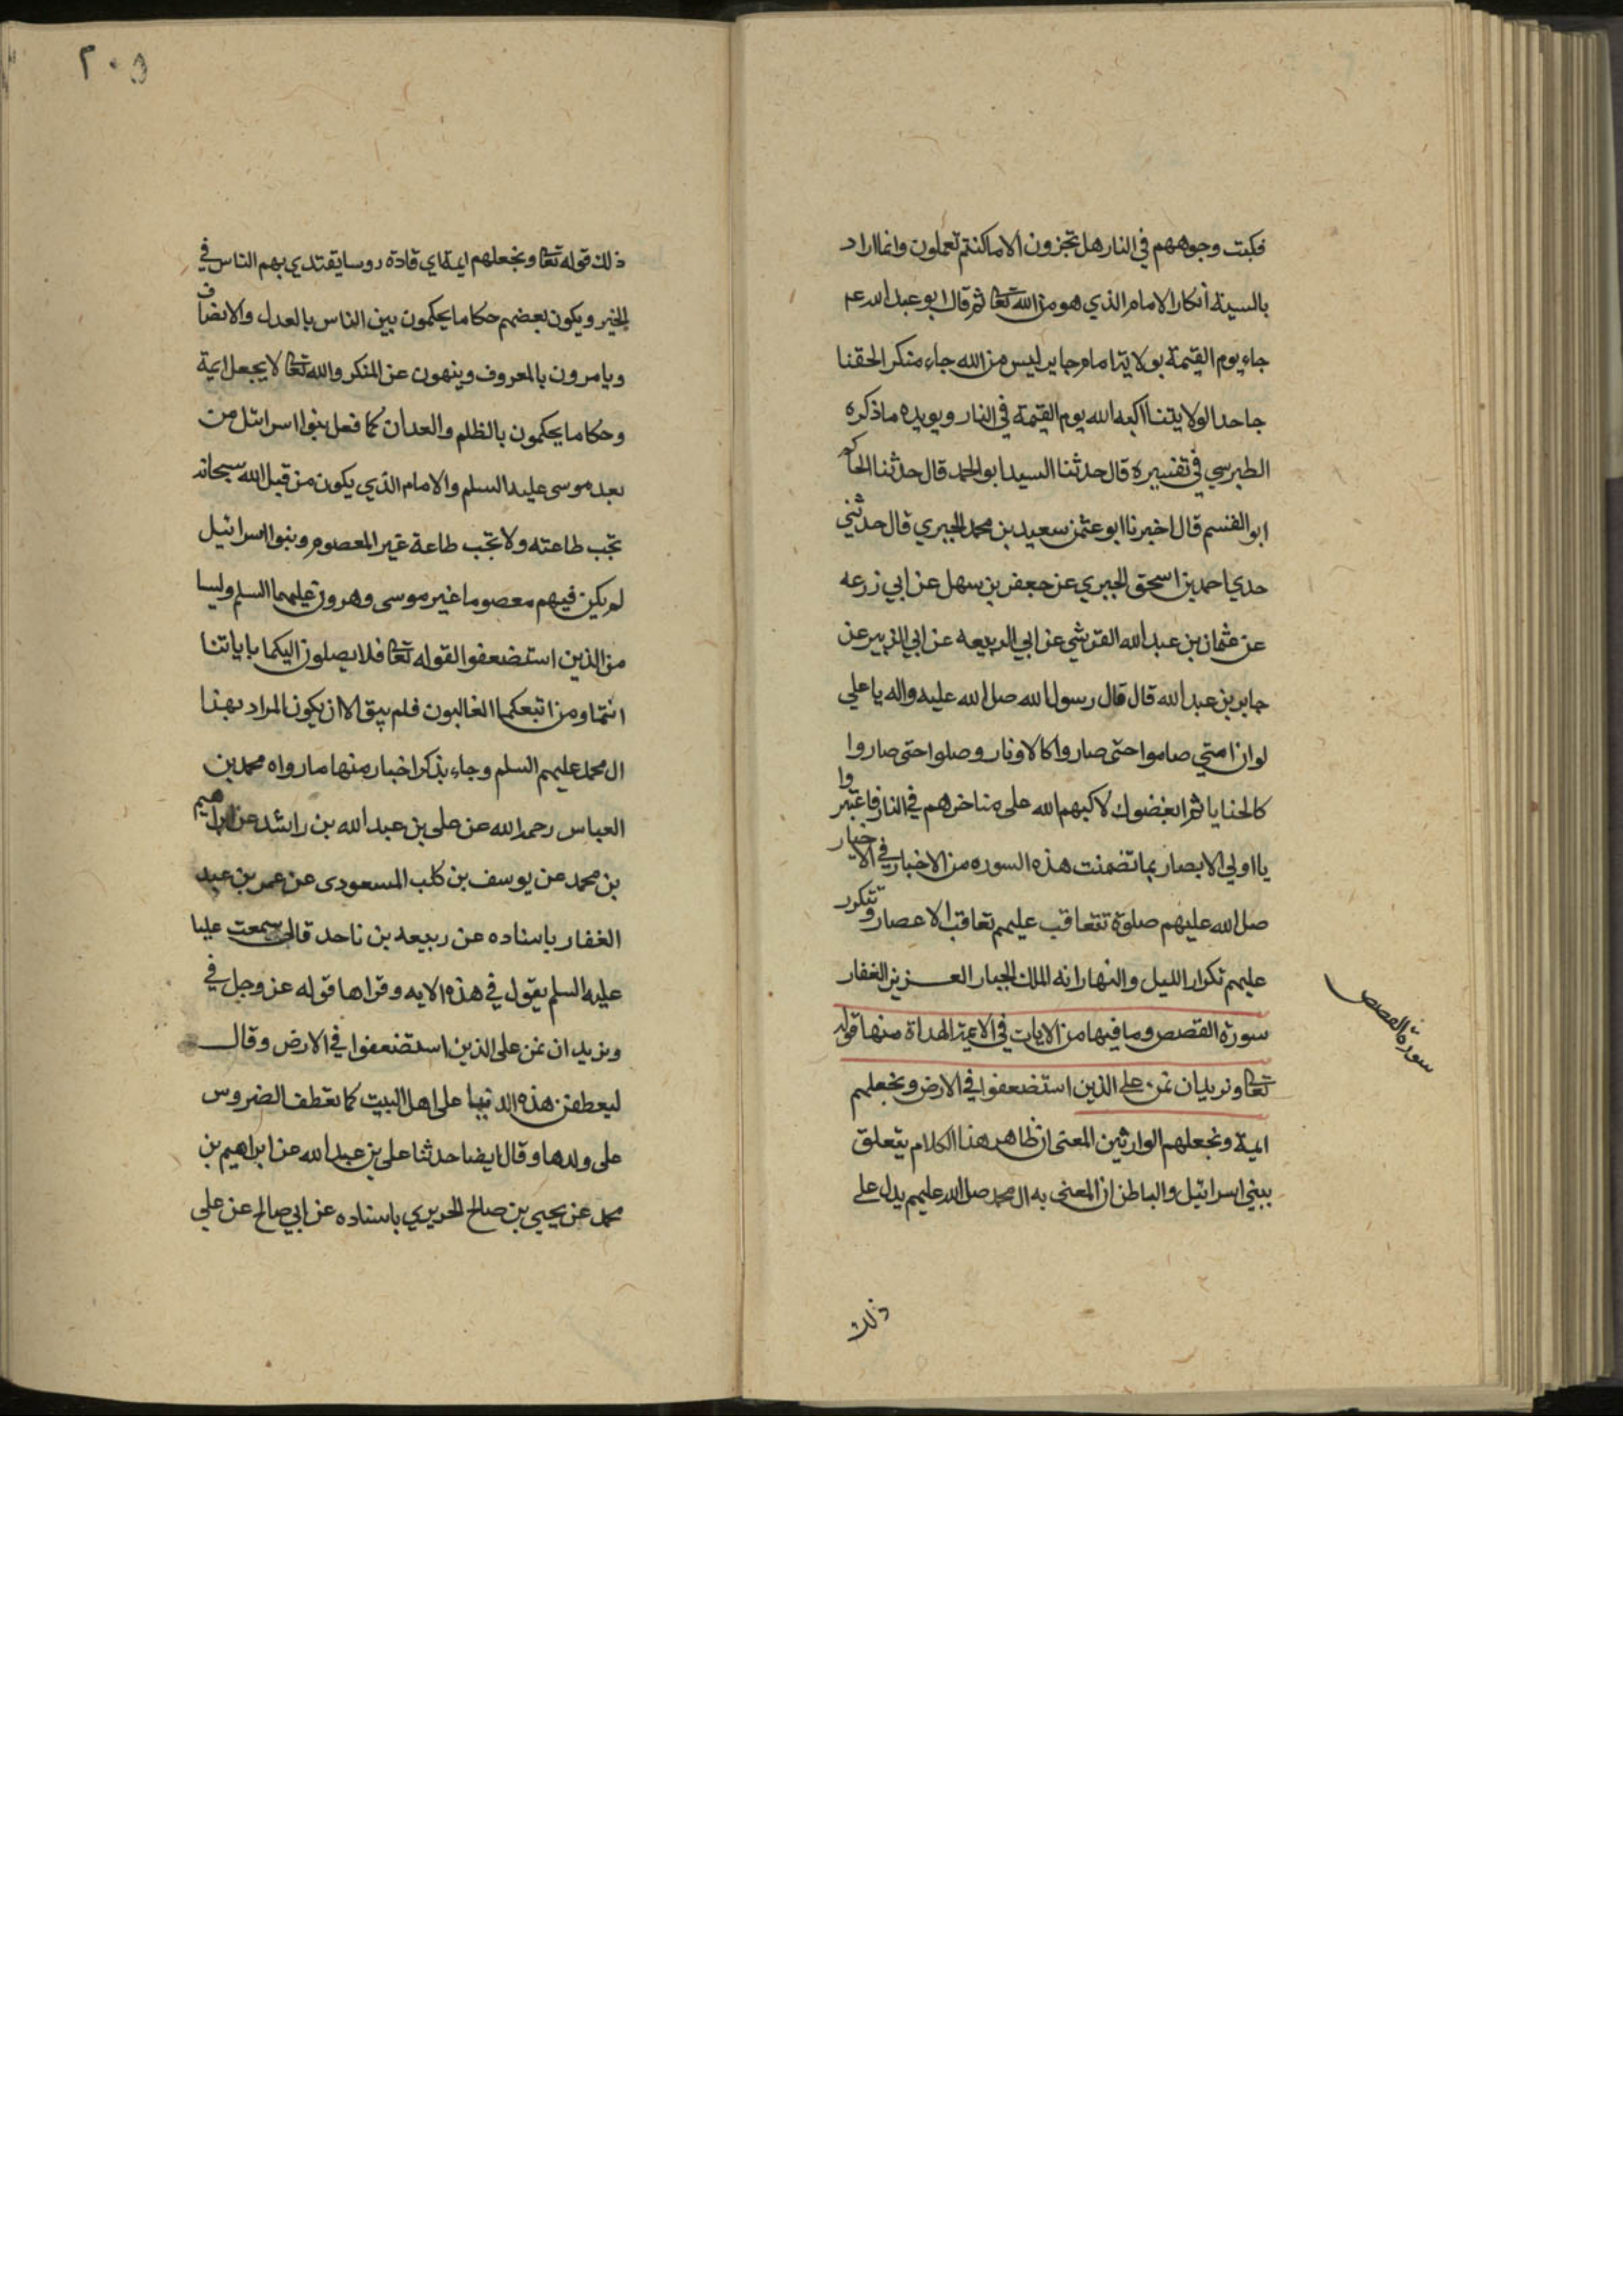 فكبت وجوههم في النار هل تجزون الا ما كنتم تعملون وانما اراد
بالسيئة انكار الامام الذي هو من الله تعا ثم قال ابو عبد الله عم
جاء يوم القيمة بولاية امام جاير ليس من الله جاء منكر الحقنا
جاحدا لولايتنا اكبه الله يوم القيمة في النار ويويده ما ذكره
الطبرسي في تفسيره قال حدثنا السيد ابو الحمد قال حدثنا الحاكم
ابو القسم قال اخبرنا ابو عثمن سعيد بن محمد الجبري قال حدثني
جدي احمد بن اسحق الجبري عن جعفر بن سهل عن ابي زرعه
عن عثمان بن عبد الله القرشي عن ابي الربيعه عن ابي الزبير عن
جابر بن عبد الله قال قال رسول الله صل الله عليه واله يا علي
لو ان امتي صاموا حتى صاروا كالاوتار وصلوا حتى صاروا
كالحنايا ثم ابغضوك لاكبهم الله على مناخرهم في النار فاعتبروا
يا اولي الابصار بما تضمنت هذه السوره من الاخبار في الاخيار
صل الله عليهم صلوة تتعاقب عليهم تعاقب الاعصار وتتكرر
عليهم تكرار الليل والنهار انه الملك الجبار العزيز الغفار
سورة القصص وما فيها من الايات في الايمة الهداة منها قوله
تعا ونريد ان نمن على الذين استضعفوا في الارض ونجعلهم
ايمة ونجعلهم الوارثين المعنى ان ظاهر هذا الكلام يتعلق
ببني اسرائيل والباطن ان المعنى به ال محمد صل الله عليهم يدل على
ذلك
سورة القصص
٢٠٥
ذلك قوله تعا ونجعلهم ايمة اي قادة روسا يقتدي بهم الناس في
الخير ويكون بعضهم حكاما يحكمون بين الناس بالعدل والانصاف
ويامرون بالمعروف وينهون عن المنكر والله تعا لا يجعل ايمة
وحكاما يحكمون بالظلم والعدان كما فعل بنوا اسرائل من
بعد موسى عليه السلم والامام الذي يكون من قبل الله سبحانه
تجب طاعته ولا تجب طاعة غير المعصوم وبنوا اسرائيل
لم يكن فيهم معصوما غير موسى وهرون عليهما السلم وليسا
من الذين استضعفوا لقوله تعا فلا يصلون اليكما باياتنا
انتما ومن اتبعكما الغالبون فلم يبق الا ان يكون المراد بهذا
ال محمد عليهم السلم وجاء بذكر اخبار منها ما رواه محمد بن
العباس رحمه الله عن علي بن عبد الله بن راشد عن ابراهيم
بن محمد عن يوسف بن كلب المسعودى عن عمر بن عبد
الغفار باسناده عن ربيعه بن ناجد قال سمعت عليا
عليه السلم يقول في هذه الايه وقراها قوله عز وجل في
ونريد ان نمن على الذين استضعفوا في الارض وقال
ليعطفن هذه الدنيا على اهل البيت كما تعطف الضروس
على ولدها وقال ايضا حدثنا علي بن عبد الله عن ابراهيم بن
محمد عن يحيى بن صالح الحريري باسناده عن ابي صالح عن علي